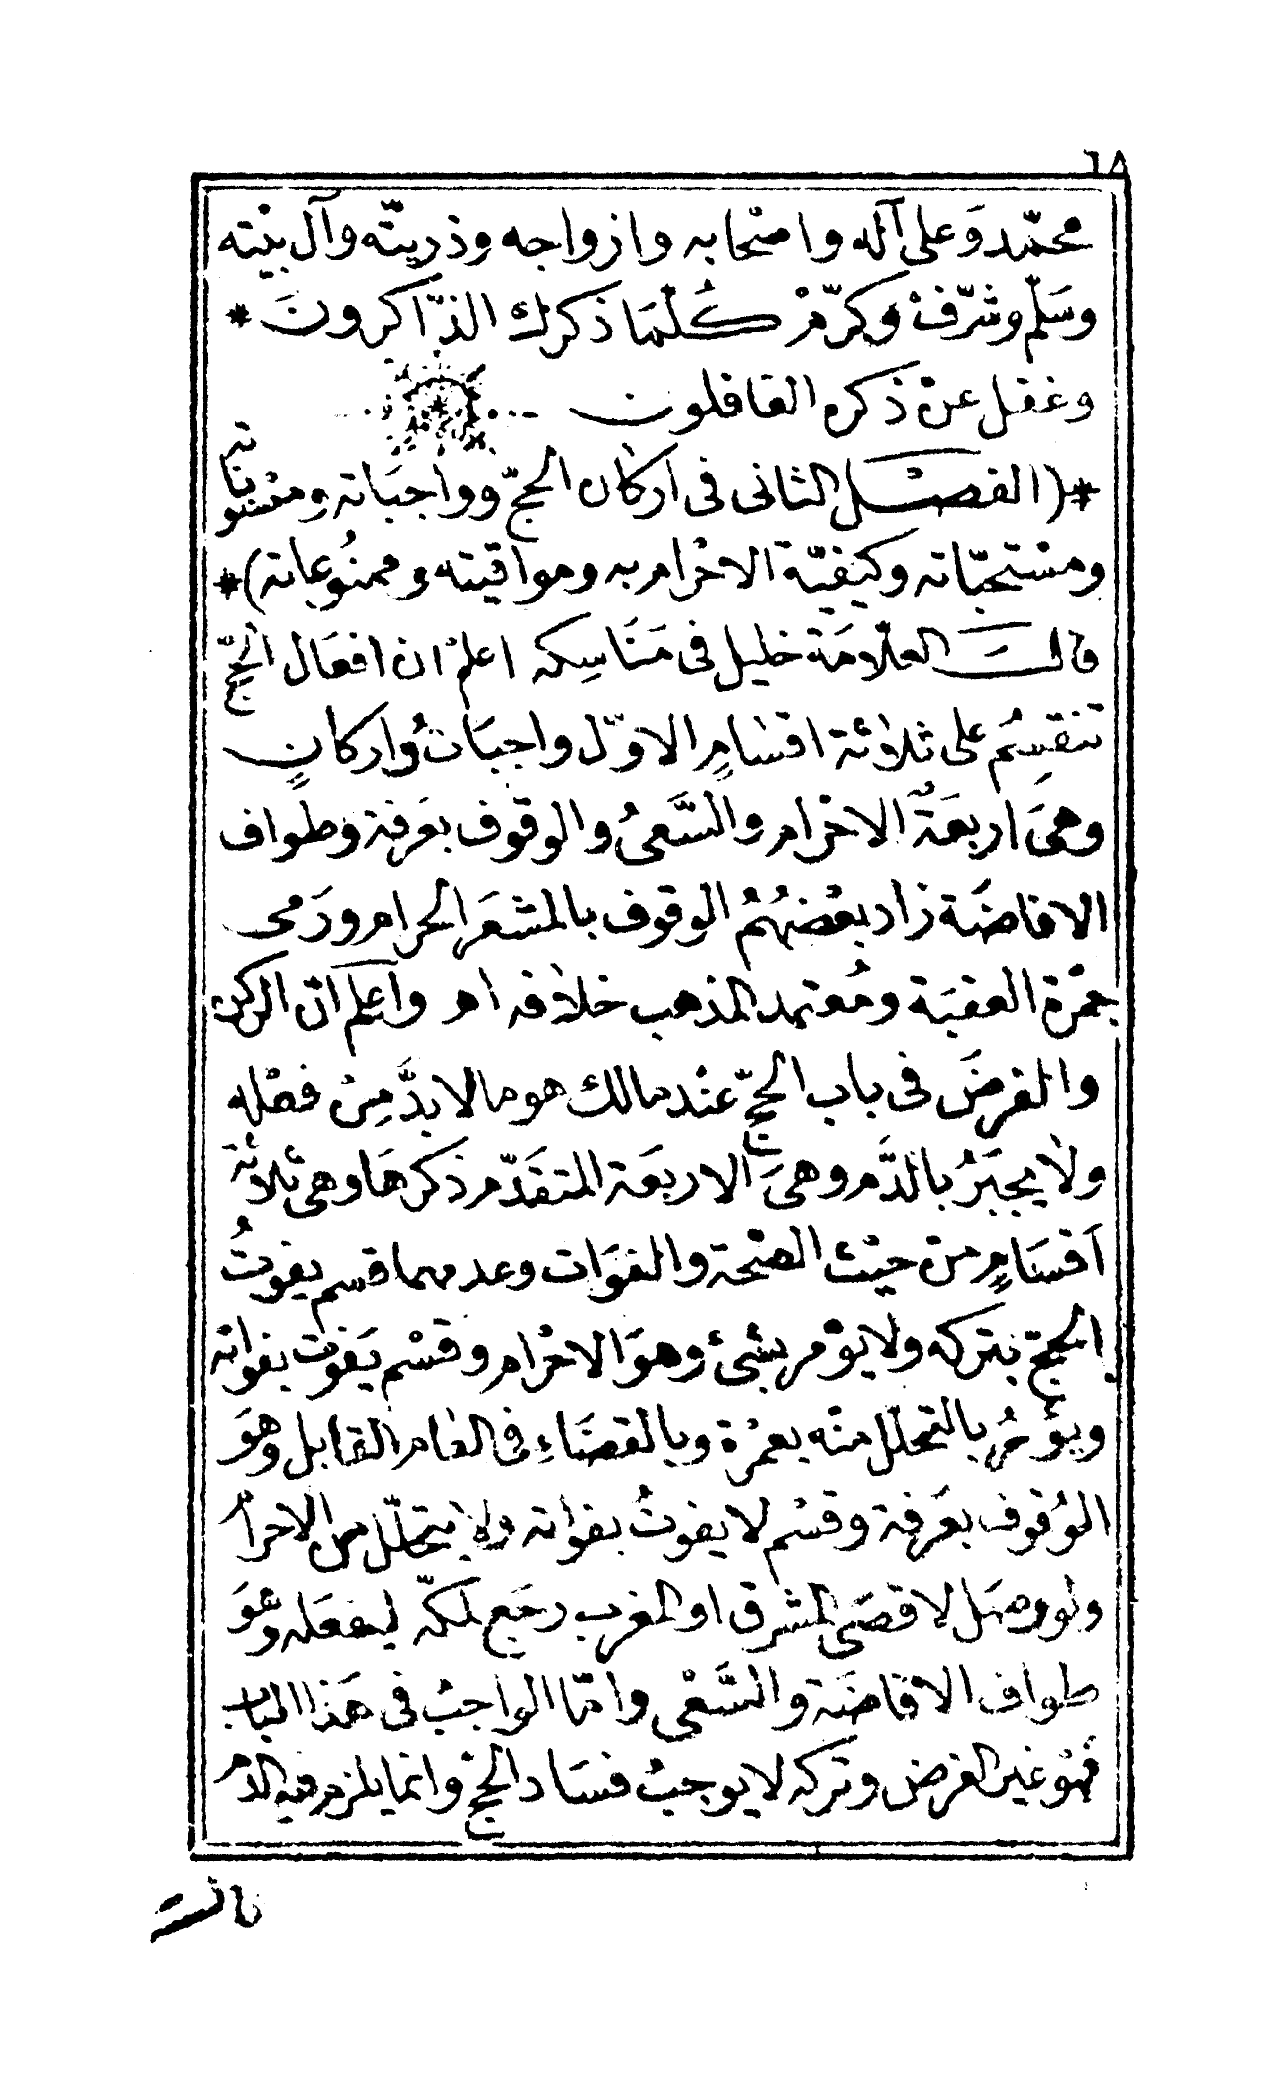 ٦٨
محمّد وَعلى آله واصْحابه وازواجه وذريتّه وآل بيْته
وسَلّم وشرّفْ وَكرّمْ كُلّمَا ذكرك الذّاكرونَ *
وغفل عنْ ذكره الغافلون
*(الفصْل الثانى فى اركان الحجّ وواجبَاته ومسْنوناته
ومسْتحبّاته وكيْفيّة الاحْرام به ومواقيته وممنُوعاته)*
قالَ العلّامَة خليل فى مَنَاسِكه اعلمْ ان افعَال الحجّ
تنقسِمُ على ثلاثة اقسَامٍ الاوّل واجبَاتُ واركانٍ
وهىَ اربعَةٌ الاحْرام والسَّعىُ والوقوف بعَرفة وطواف
الافاضَة زاد بعْضهُمُ الوقوف بالمشعَر الحرام ورَمى
جمْرة العقبَة ومُعتمد المذهب خلافه اهـ واعلم انّ الركن
والفرضَ فى باب الحجّ عنْد مالك هو مالا بدَّ مِنْ فعْله
ولا يجبَرُ بالدَّم وهىَ الاربعَة المتقَدّم ذكرهَا وهى ثلاثة
اَقسَامٍ منْ حيْث الصّحة والفوَات وعدمهما قسم يفوتُ
الحجّ بتركه ولا يؤمر بشئ وهوَ الاحْرام وقسْم يَفوت بفواته
ويؤمرُ بالتحلّل منْه بعمْرة وبالقضَاء فى العام القابل وهوَ
الوُقوف بعَرفة وقسْم لا يفوتُ بفواته ولا يتحلّل من الاحرام
ولو وصَل لاقصَى المشرق او المغرب رجَع لمكّة ليفعَله وهوَ
طواف الافاضَة والسَّعْى وامّا الواجبُ فى هَذا الباب
فهُو غير الفرض وتركه لا يوجبُ فسَاد الحجّ وانما يلزم فيه الدّم
قالَ